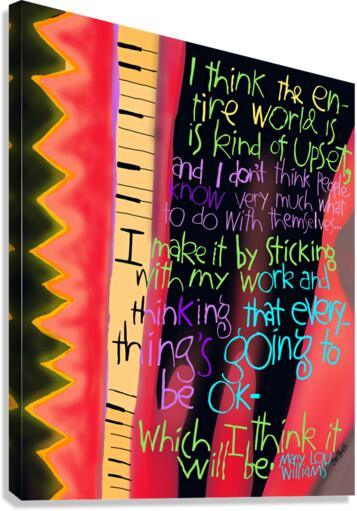 I think the en-
tire world is
is kind of upset,
and I don't think people
know very much what
to do with themselves...
I make it by sticking
with my work and
thinking that every-
thing's going to
be ok-
Which I think it
will be. Mary Lou
Williams